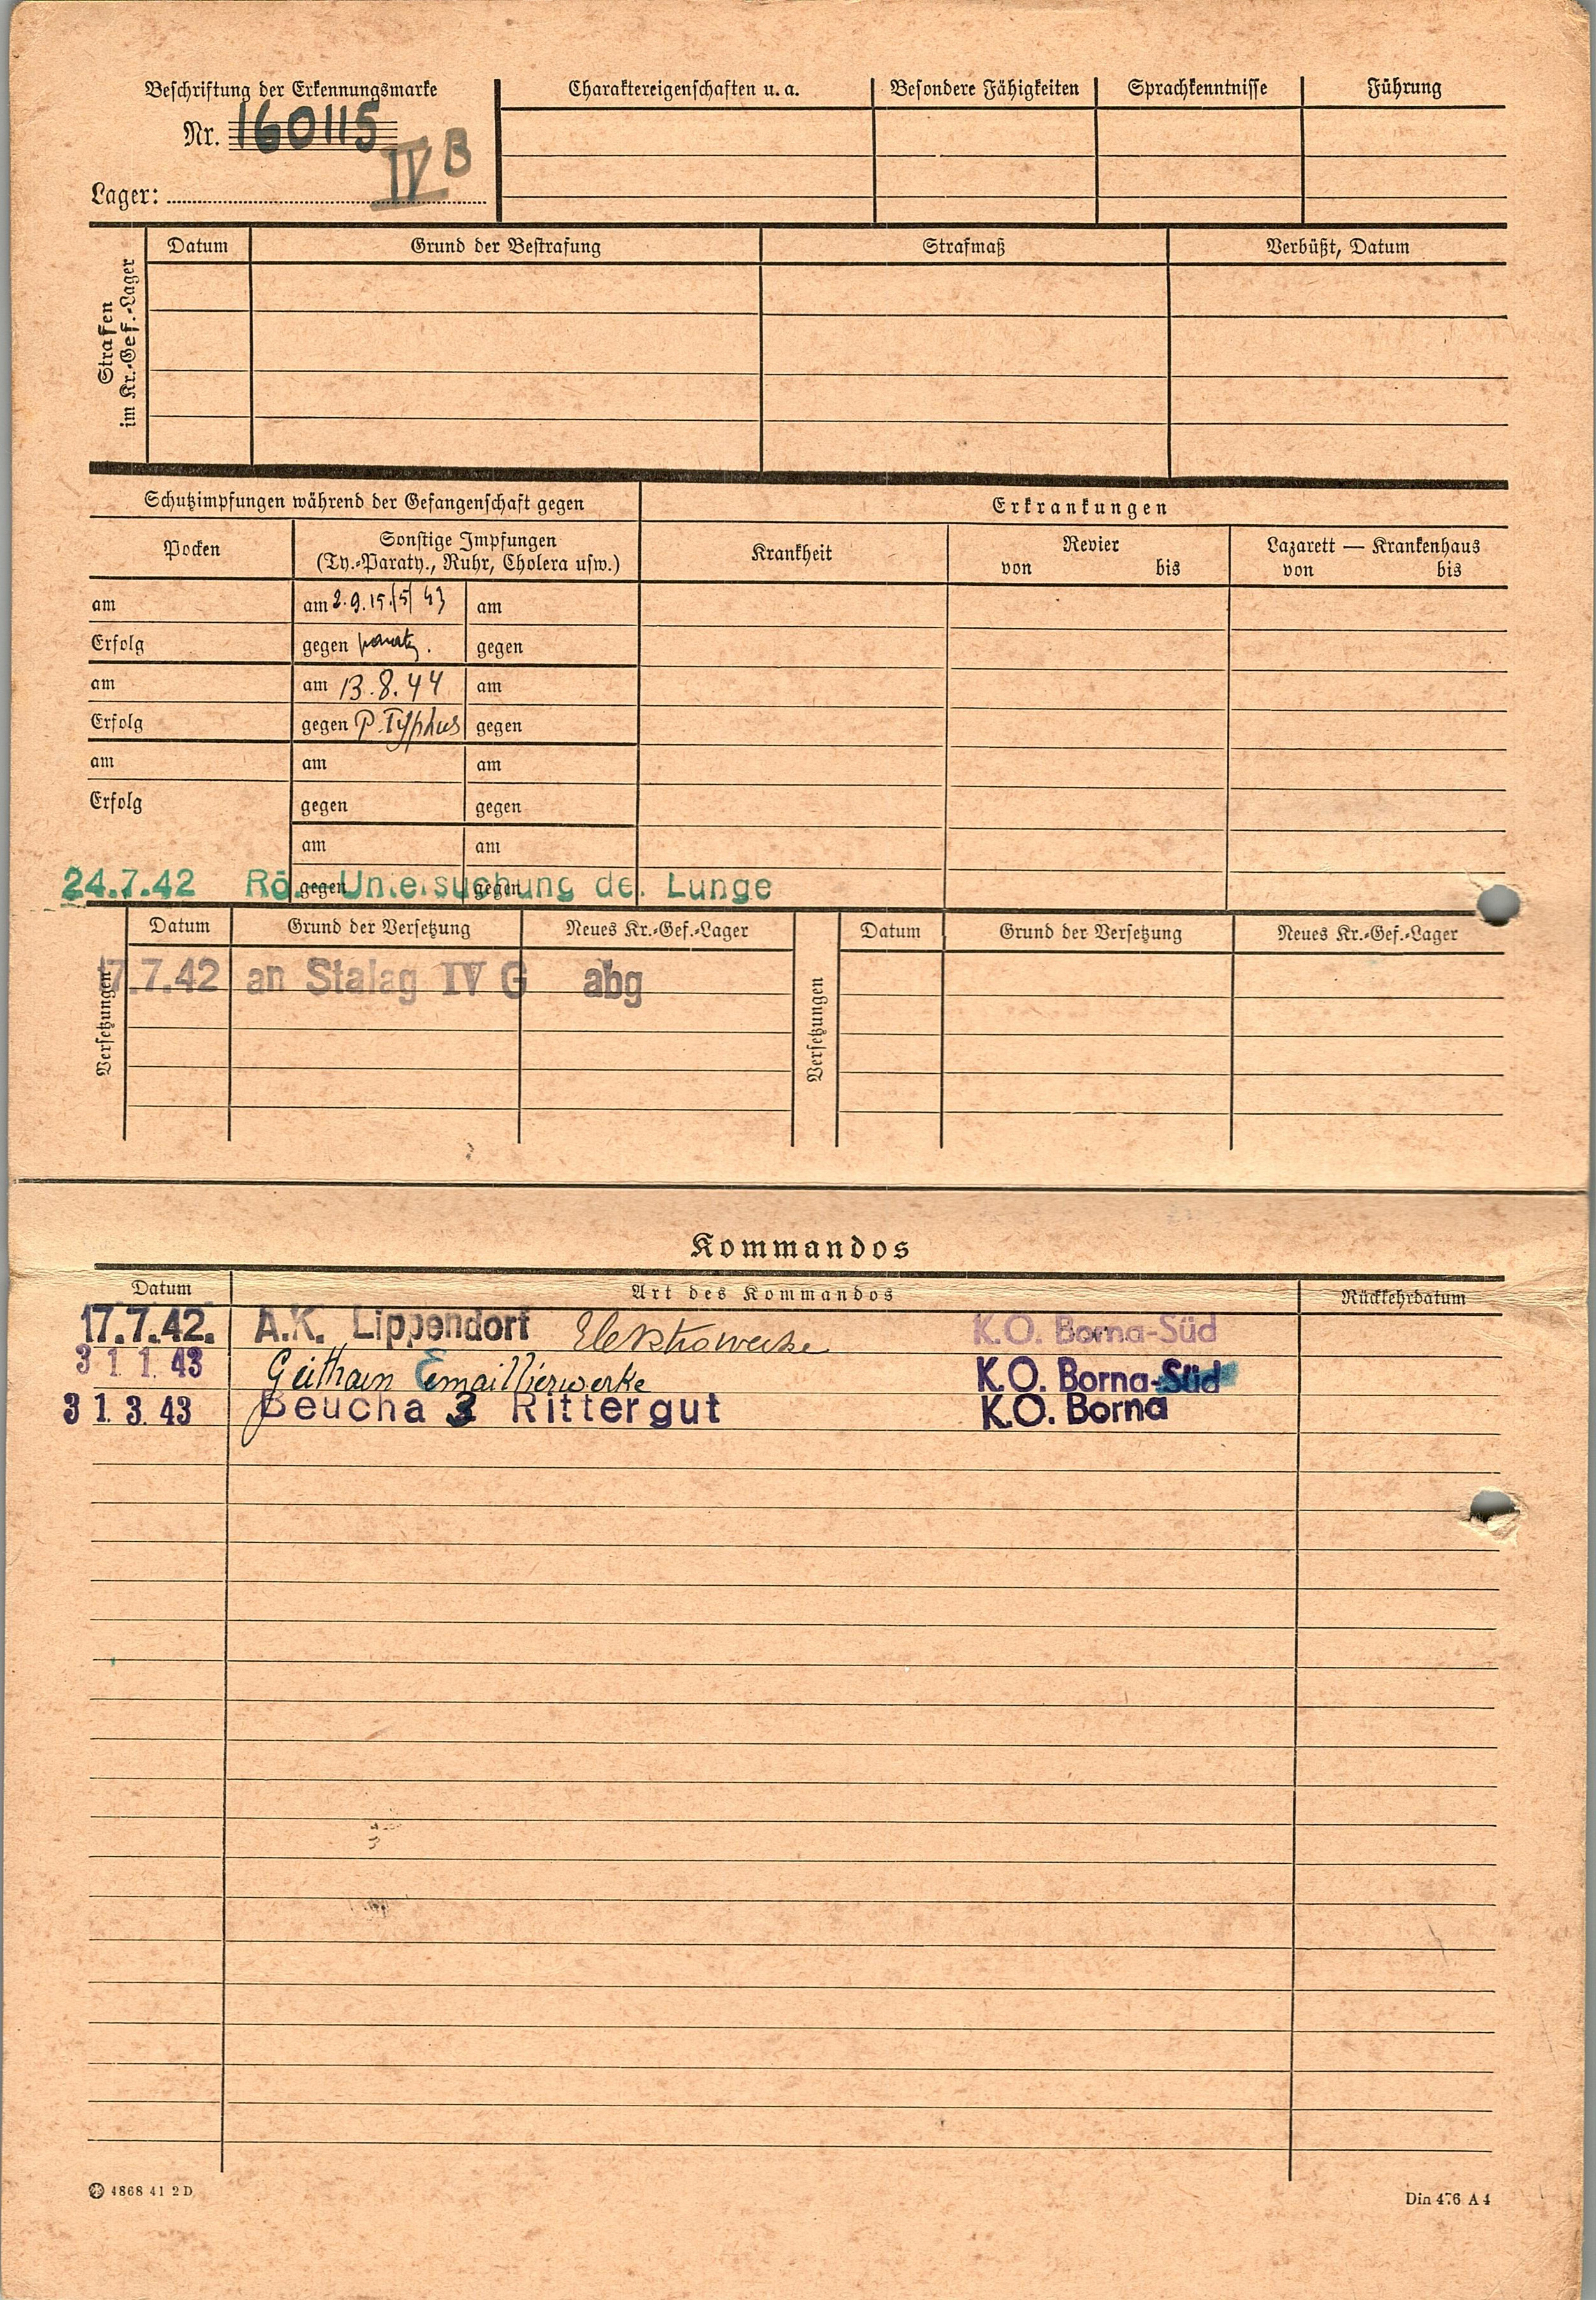 Beschriftung der Erkennungsmarke
Nr. 160115
Lager: IV B
Charaktereigenschaften u. a. Besondere Fähigkeiten Sprachkenntnisse Führung
Strafen im Kr.-Gef.-Lager
Datum Grund der Bestrafung Strafmaß Verbüßt, Datum
Schutzimpfungen während der Gefangenschaft gegen Erkrankungen
Pocken Sonstige Impfungen Krankheit Revier Lazarett — Krankenhaus
(Ty.-Paraty., Ruhr, Cholera usw.) von bis von bis
am am 2.9.15./5/43 am
Erfolg gegen paraty. gegen
am am 13.8.44 am
Erfolg gegen P.Typhus gegen
am am am
Erfolg gegen gegen
am am
gegen gegen
24.7.42 Rö.-Untersuchung der Lunge
Versetzungen Datum Grund der Versetzung Neues Kr.-Gef.-Lager Versetzungen Datum Grund der Versetzung Neues Kr.-Gef.-Lager
17.7.42 an Stalag IV G abg
Kommandos
Datum Art des Kommandos Rückkehrdatum
17.7.42. A.K. Lippendorf Elektrowerke K.O. Borna-Süd
31 1. 43 Geithain Emaillierwerke K.O. Borna-Süd
31. 3. 43 Beucha 3 Rittergut K.O. Borna
4868 41 2 D
Din 476 A 4